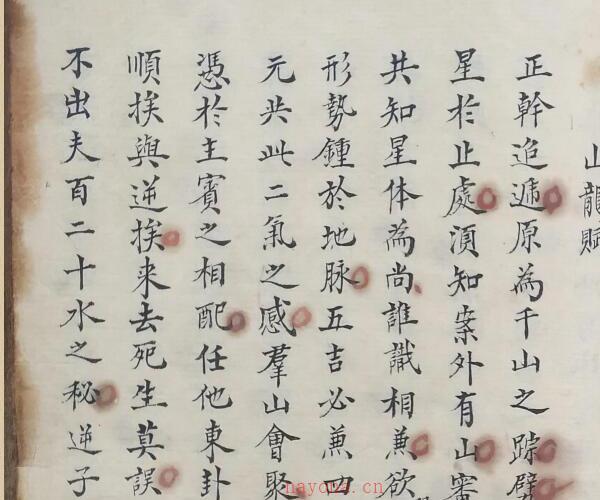 山龍賦
正幹追遞原為千山之踪
星於止處湏知案外有山
共知星体為尚誰識相兼欲
形勢鍾於地脉五吉必兼四
元共此二氣之感羣山會聚
憑於主賓之相配任他東卦
順挨與逆挨来去死生莫誤
不出夫百二十水之秘逆子
nayona.cn